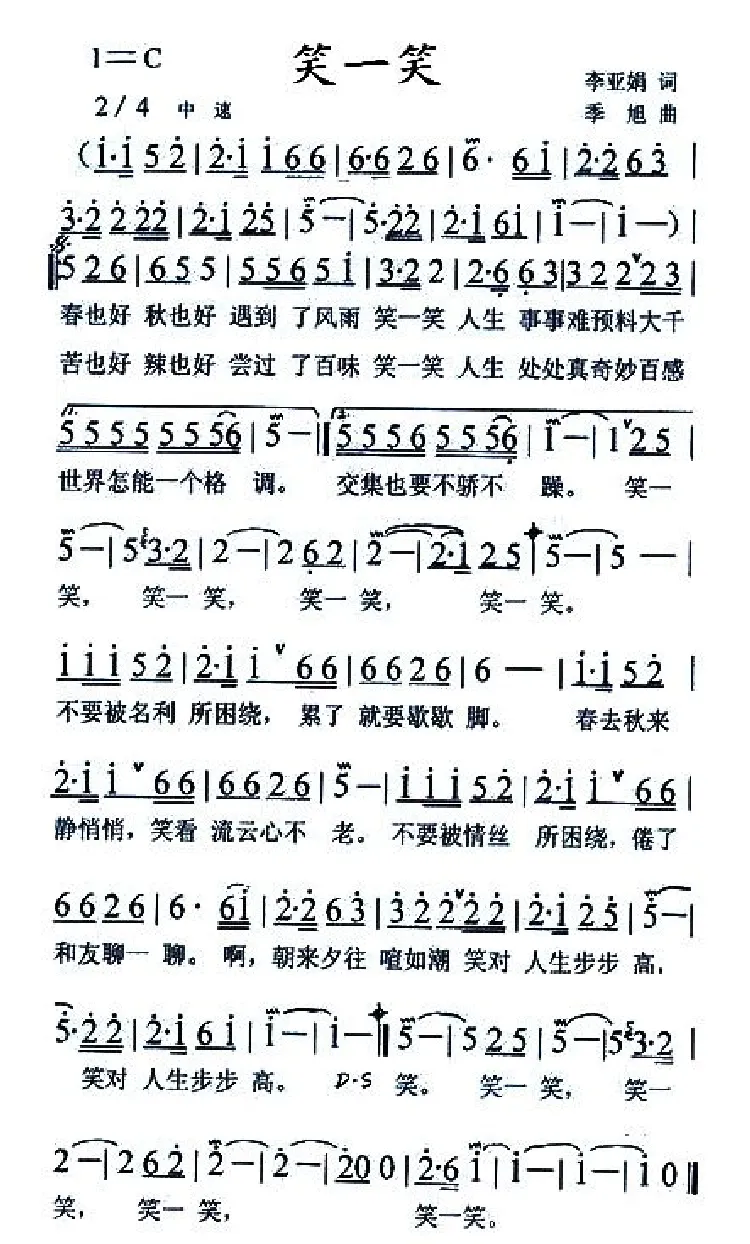 1=C
笑一笑
李亚娟 词
2/4 中速
季旭 曲
(i·i 5 2̇ | 2̇·i i 6 6 | 6·6 2 6 | 6· 6 i | 2̇·2̇ 6 3̇ |
3̇·2̇ 2̇ 2̇2̇ | 2̇·i 2̇5 | 5 — | 5·2̇2̇ | 2̇·i 6i | i — | i — ) |
5 2 6 | 6 5 5 | 5 5 6 5 i | 3·2 2 | 2·6 6 3 | 3 2 2 ∨ 2 3 |
春也好 秋也好 遇到 了风雨 笑一笑 人生 事事难预料大千
苦也好 辣也好 尝过 了百味 笑一笑 人生 处处真奇妙百感
1. 5 5 5 5 5 5 5 6 | 5 — :| 2. 5 5 5 6 5 5 5 6 | i — | 1 ∨ 2 5 |
世界怎能一个格 调。 交集也要不骄不 躁。 笑一
5 — | 5 3·2 | 2 — | 2 6 2 | 2 — | 2·1 2 5 | 5 — | 5 — |
笑, 笑一 笑, 笑一 笑, 笑一 笑。
i i i 5 2̇ | 2̇·i i ∨ 6 6 | 6 6 2 6 | 6 — | i·i 5 2̇ |
不要被名利 所困绕, 累了 就要歇歇 脚。 春去秋来
2̇·i i ∨ 6 6 | 6 6 2 6 | 5 — | i i i 5 2̇ | 2̇·i i ∨ 6 6 |
静悄悄, 笑看 流云心不 老。 不要被情丝 所困绕, 倦了
6 6 2 6 | 6· 6i | 2̇·2̇ 6 3̇ | 3̇ 2̇ 2̇ ∨ 2̇ 2̇ | 2̇·i 2̇ 5 | 5 — |
和友聊一 聊。 啊, 朝来夕往 喧如潮 笑对 人生步步 高,
5·2̇ 2̇ | 2̇·i 6 i | i — | i — | 5 — | 5 2 5 | 5 — | 5 3·2 |
笑对 人生步步 高。 D·S 笑。 笑一 笑, 笑一
2 — | 2 6 2̇ | 2̇ — | 2̇ — | 2̇0 0 | 2̇·6 i | i — | i — | i 0 ‖
笑, 笑一 笑, 笑一笑。